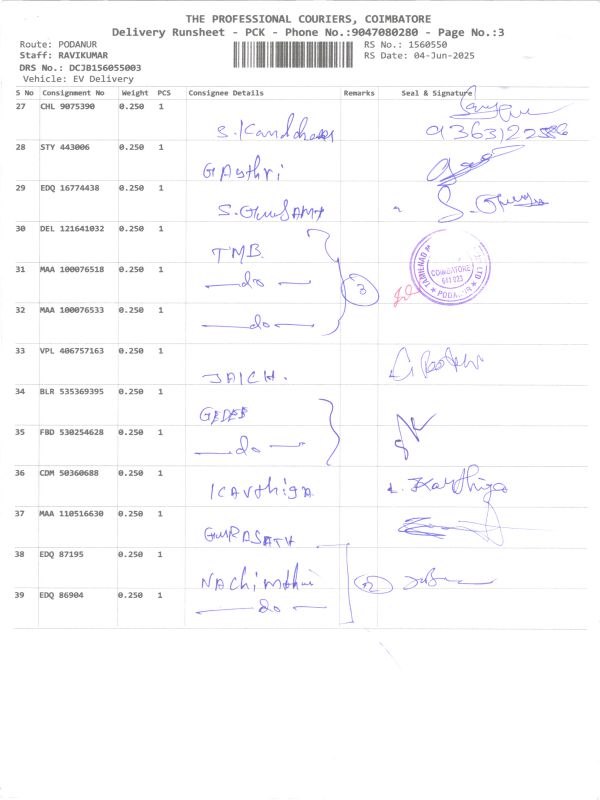 THE PROFESSIONAL COURIERS, COIMBATORE
Delivery Runsheet - PCK - Phone No.:9047080280 - Page No.:3
Route: PODANUR
RS No.: 1560550
Staff: RAVIKUMAR
RS Date: 04-Jun-2025
DRS No.: DCJB156055003
Vehicle: EV Delivery
S No Consignment No Weight PCS Consignee Details Remarks Seal & Signature
27 CHL 9075390 0.250 1
S.
28 STY 443006 0.250 1
GAythri
29 EDQ 16774438 0.250 1
S.
30 DEL 121641032 0.250 1
TMB.
31 MAA 100076518 0.250 1
do 3
COIMBATORE
641 023
32 MAA 100076533 0.250 1
do
33 VPL 406757163 0.250 1
JAICH.
34 BLR 535369395 0.250 1
35 FBD 530254628 0.250 1
do
36 CDM 50360688 0.250 1
Karthiga Karthiga
37 MAA 110516630 0.250 1
38 EDQ 87195 0.250 1
2
39 EDQ 86904 0.250 1
do